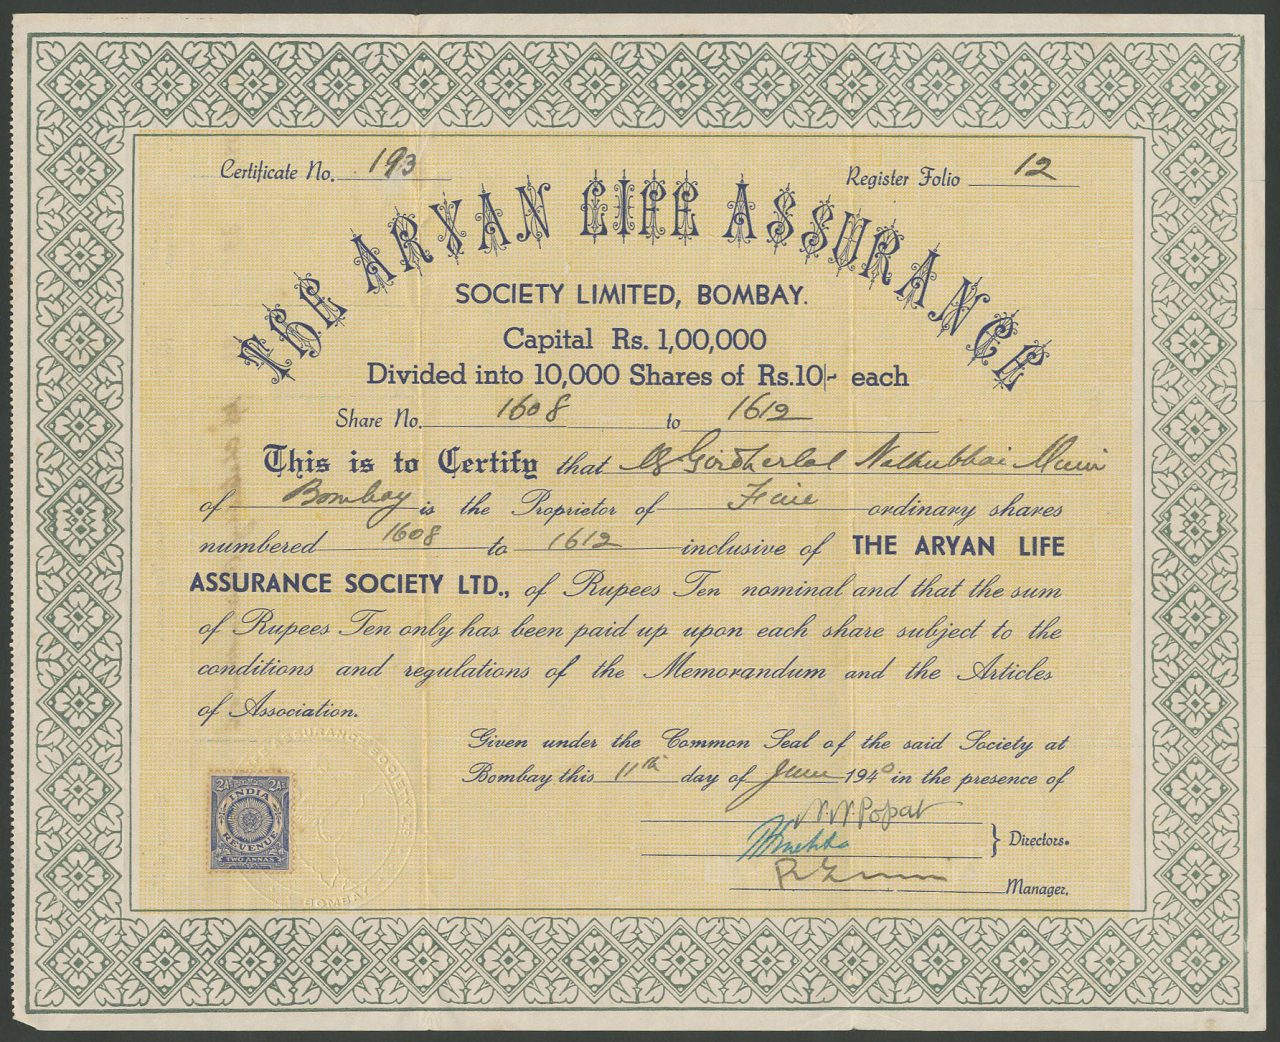 Certificate No. 193
Register Folio 12
THE ARYAN LIFE ASSURANCE
SOCIETY LIMITED, BOMBAY.
Capital Rs. 1,00,000
Divided into 10,000 Shares of Rs.10/- each
Share No. 1608 to 1612
This is to Certify that Girdharlal Nathubhai
of Bombay is the Proprietor of Five ordinary shares
numbered 1608 to 1612 inclusive of THE ARYAN LIFE
ASSURANCE SOCIETY LTD., of Rupees Ten nominal and that the sum
of Rupees Ten only has been paid up upon each share subject to the
conditions and regulations of the Memorandum and the Articles
of Association.
Given under the Common Seal of the said Society at
Bombay this 11th day of June 1940 in the presence of
N.N. Popat
Directors.
Manager.
2As 2As
INDIA
REVENUE
TWO ANNAS
LIFE ASSURANCE SOCIETY LTD.
BOMBAY